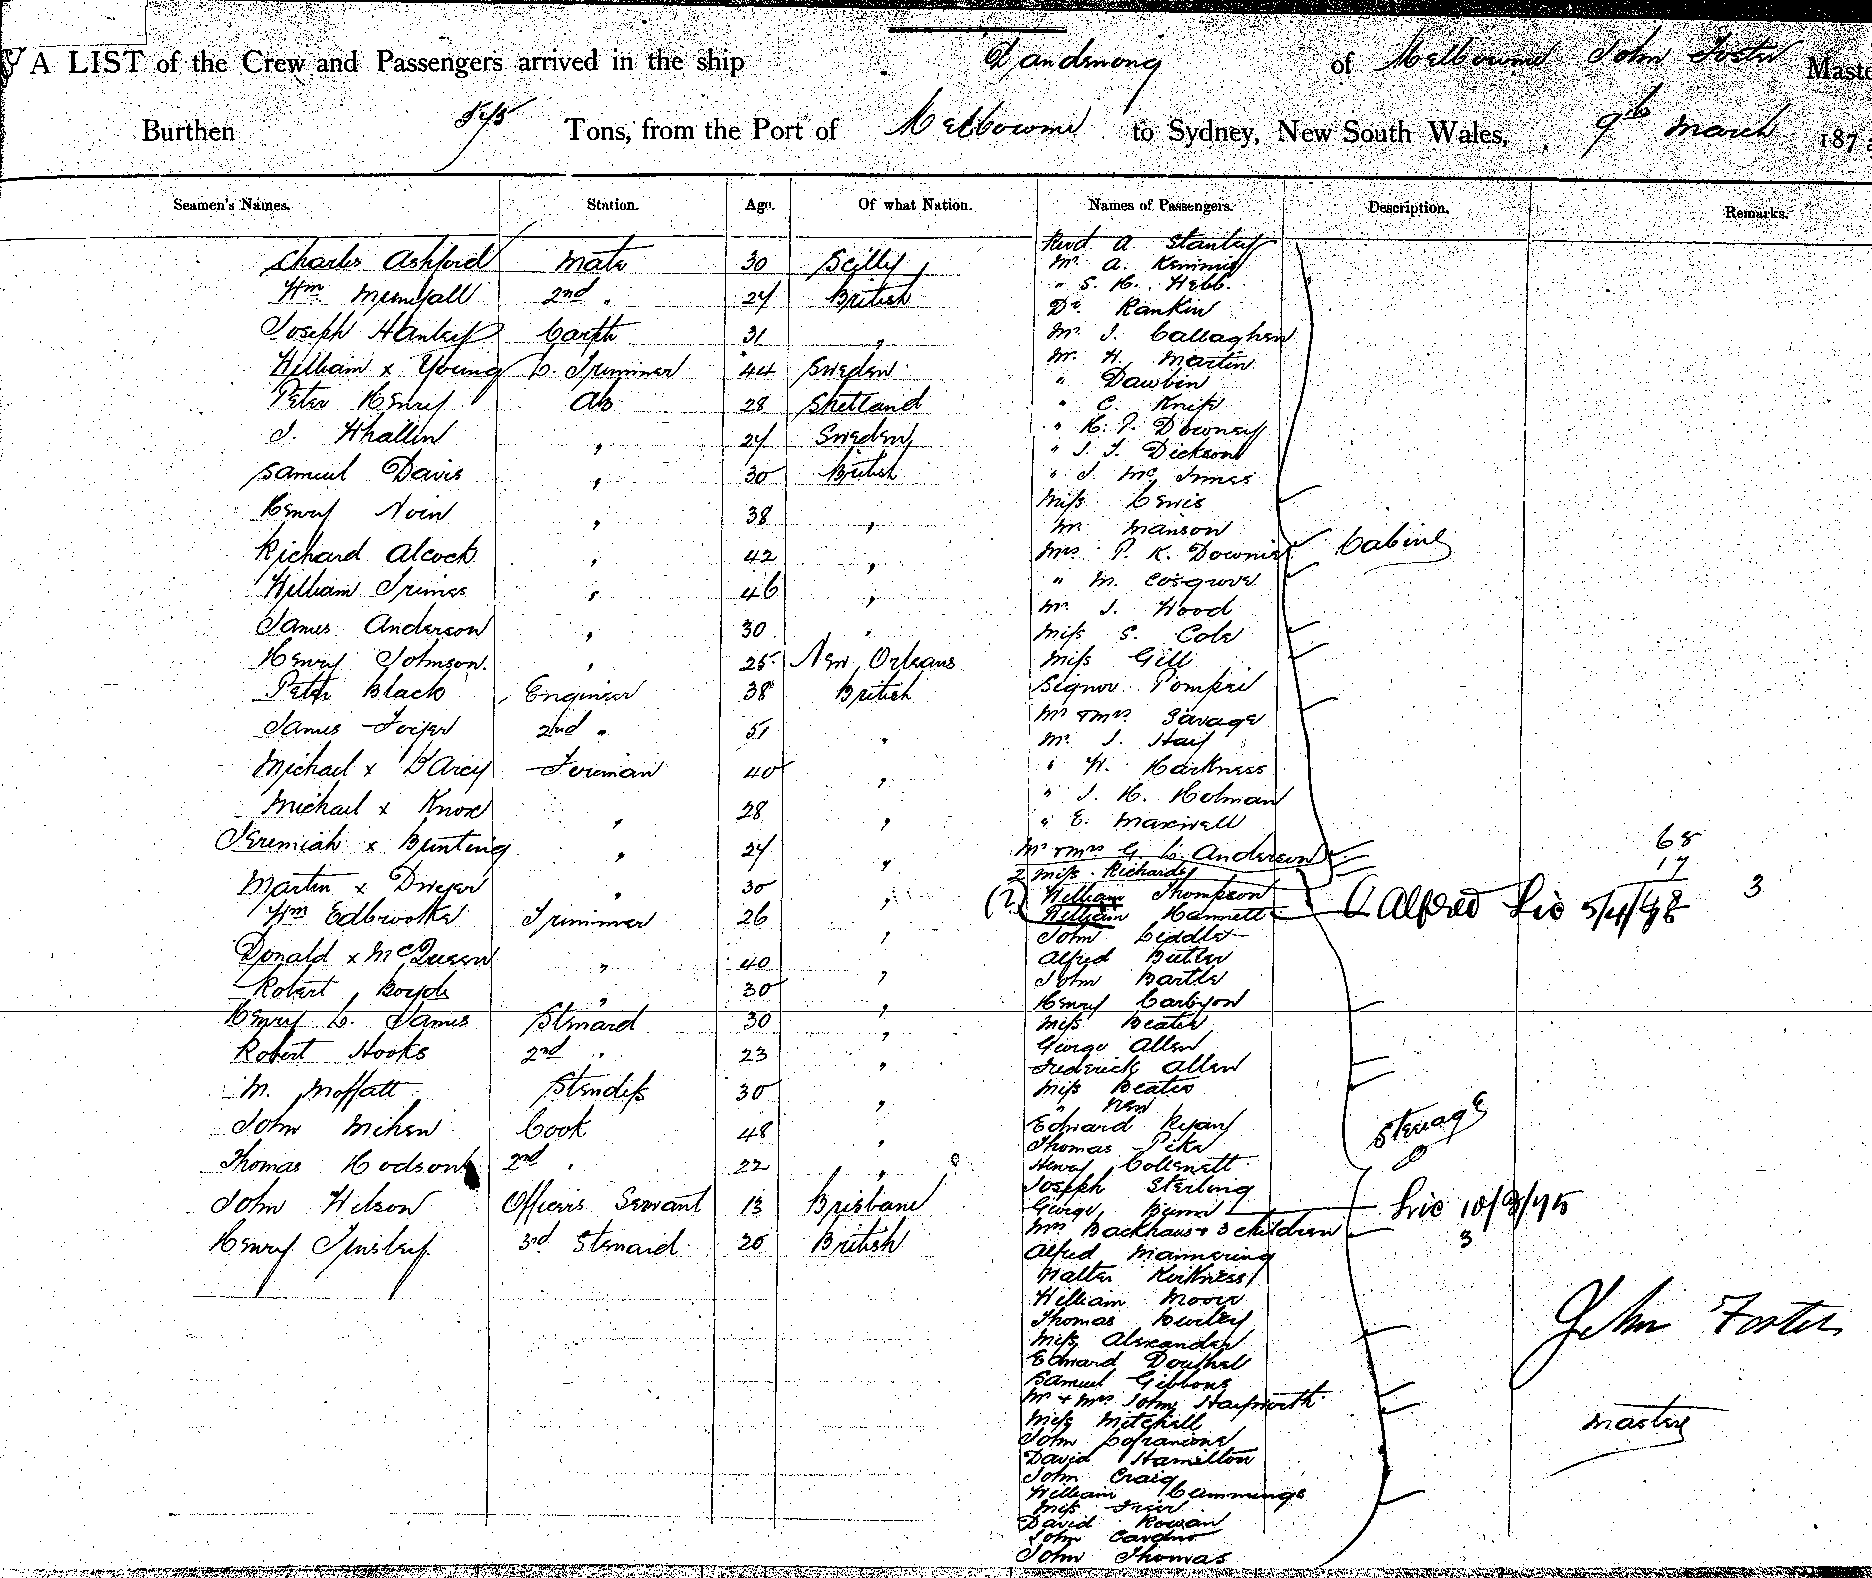 A LIST of the Crew and Passengers arrived in the ship Dandenong of Melbourne John Foster Maste
Burthen Tons, from the Port of Melbourne to Sydney, New South Wales, 9th March 187
Seamen's Names. Station. Age. Of what Nation. Names of Passengers. Description. Remarks.
Charles Ashford Mate 30 Scilly
Wm 2nd " 24 British
Joseph Hanley Carptr 31 "
William x Young C. Trimmer 44 Sweden
Peter Henry AB 28 Shetland
J. Whallin " 24 Sweden
Samuel Davis " 30 British
Henry " 38 "
Richard Alcock " 42 "
William " 46 "
James Anderson " 30 "
Henry Johnson " 25 New Orleans
Peter Black Engineer 38 British
James 2nd " 51 "
Michael x D'Arcy Fireman 40 "
Michael x Knox " 28 "
Jeremiah x Bunting " 24 "
Martin x Dwyer " 30 "
Wm Edbrooke Trimmer 26 "
Donald x McQueen " 40 "
Robert Boyd " 30 "
Henry C. James Steward 30 "
Robert Hooks 2nd " 23 "
M. Moffatt Stewdess 30 "
John Cook 48 "
Thomas Hodson 2nd " 22 "
John Wilson Officers Servant 13 Brisbane
Henry Tinsley 3rd Steward 20 British
Revd A Stanley
Mr. A. Kemmis
" S. H. Webb
Dr. Rankin
Mr. J. Callaghan
Mr. H. Martin
" Dawbin
" C. Knife
" H. P. Downey
" J. T. Dickson
" J. McInnes
Miss Lewis
Mr Manson
Mrs P. K. Downie
" M. Cosgrove
Mr. J. Wood
Miss S. Cole
Miss Gill
Signor Pompei
Mr & Mrs Savage
Mr. J. Hay
" W. Harkness
" J. H. Holman
" E. Maxwell
Mr & Mrs G. C. Anderson
2 Miss Richards
Cabin
68
17
3
(2) William Thompson
William Hannett Alfred Lic 5/4/98
John Liddle
Alfred Butler
John Bartle
Henry Carbyon
Miss Beater
George Allen
Frederick Allen
Miss Beates
" New
Edward Ryan
Thomas Pike
Henry Collsnett
Joseph Sterling
George
Mrs Backhaus & 3 children
Alfred Mannering
Walter Kirkness
William Moore
Thomas Burley
Miss Alexander
Edward Douthel
Samuel Gibbons
Mr & Mrs John Hayworth
Miss Mitchell
John
David Hamilton
John Craig
William Cummings
Miss
David Rowan
John Cardno
John Thomas
Steerage
Lic 10/3/75
3
John Foster
Master